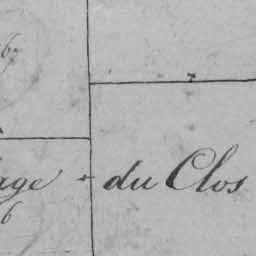 age du Clos
6